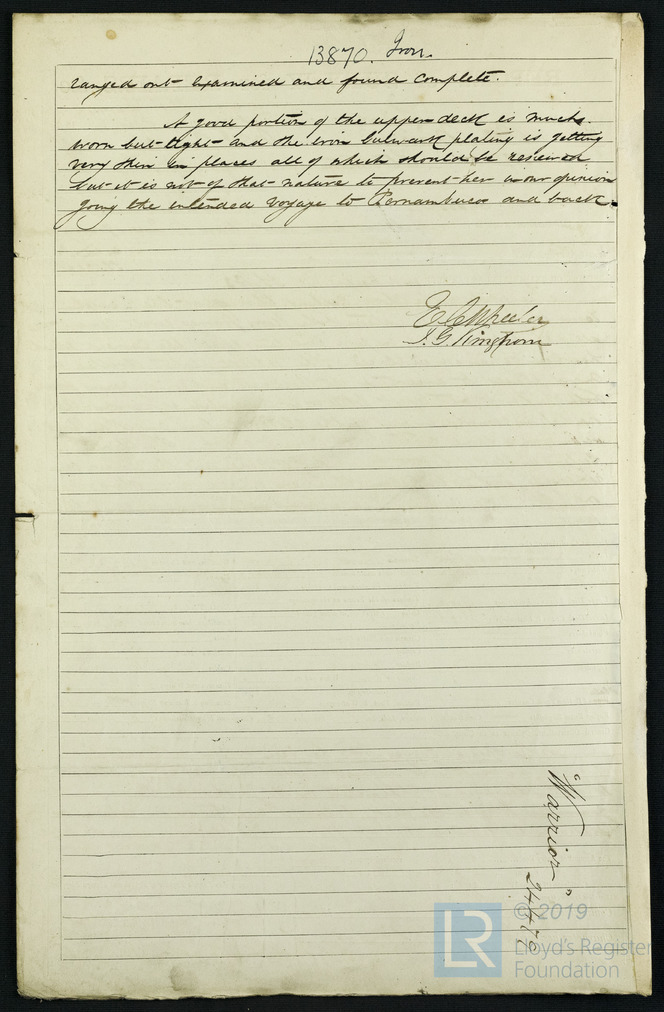 13870. Iron.
ranged out examined and found complete.
A good portion of the upper deck is much
worn but tight and the iron bulwark plating is getting
very thin in places all of which should be renewed
but it is not of that nature to prevent her in our opinion
going the intended voyage to Pernambuco and back.
E. C. Wheeler
J. G. Kinghorn
"Warrior"
24.4.76
© 2019
LR
Lloyd's Register
Foundation